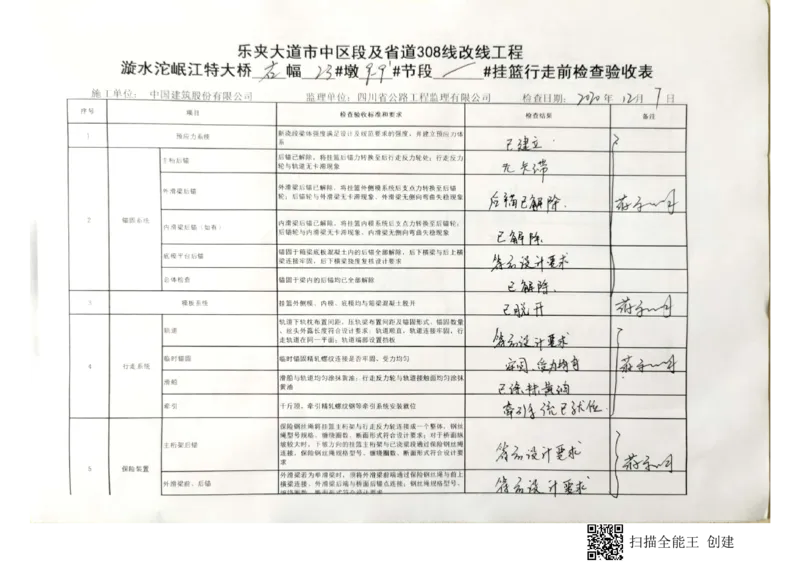 乐夹大道市中区段及省道308线改线工程
漩水沱岷江特大桥 右 幅 23#墩 9.9'#节段 #挂篮行走前检查验收表
施工单位： 中国建筑股份有限公司 监理单位：四川省公路工程监理有限公司 检查日期： 2020 年 12 月 7 日
序号 项目 检查验收标准和要求 检查结果 备注
1 预应力系统 新浇段梁体强度满足设计及规范要求的强度，并建立预应力体系 已建立
2 锚固系统
主桁后锚 后锚已解除，将挂篮后锚力转换至后行走反力轮处；行走反力轮与轨道无卡滞现象 无卡滞
外滑梁后锚 外滑梁后锚已解除，将挂篮外侧模系统后支点力转换至后锚轮；后锚轮与外滑梁无卡滞现象、外滑梁无侧向弯曲失稳现象 后锚已解除.
内滑梁后锚（如有） 内滑梁后锚已解除，将挂篮内模系统后支点力转换至后锚轮；后锚轮与内滑梁无卡滞现象、内滑梁无侧向弯曲失稳现象 已解除
底模平台后锚 锚固于箱梁底板混凝土内的后锚全部解除，后下横梁与后上横梁连接牢固，后下横梁挠度复核设计要求 符合设计要求
总体检查 锚固于梁内的后锚均已全部解除 已解除.
3 模板系统 挂篮外侧模、内模、底模均与箱梁混凝土脱开 已脱开
4 行走系统
轨道 轨道下轨枕布置间距、压轨梁布置间距及锚固形式、锚固数量、丝头外露长度符合设计要求；轨道顺直，轨道连接牢固，行走轨道在同一平面；轨道端部设置挡板 符合设计要求
临时锚固 临时锚固精轧螺纹连接是否牢固、受力均匀 牢固、受力均匀
滑船 滑船与轨道均匀涂抹黄油；行走反力轮与轨道接触面均匀涂抹黄油 已涂抹黄油
牵引 千斤顶、牵引精轧螺纹钢等牵引系统安装就位 牵引系统已就位.
5 保险装置
主桁架后锚 保险钢丝绳将挂篮主桁架与行走反力轮连接成一个整体，钢丝绳型号规格、缠绕圈数、断面形式符合设计要求；对于桥面纵坡较大时，下坡方向的挂篮主桁架与已浇梁段通过保险钢丝绳连接，保险钢丝绳规格型号、缠绕圈数、断面形式符合设计要求 符合设计要求
外滑梁前、后锚 外滑梁若为单滑梁时，须将外滑梁前端通过保险钢丝绳与前上横梁连接、外滑梁后端与桥面后锚点连接；钢丝绳规格型号、缠绕圈数、断面形式符合设计要求 符合设计要求
扫描全能王 创建